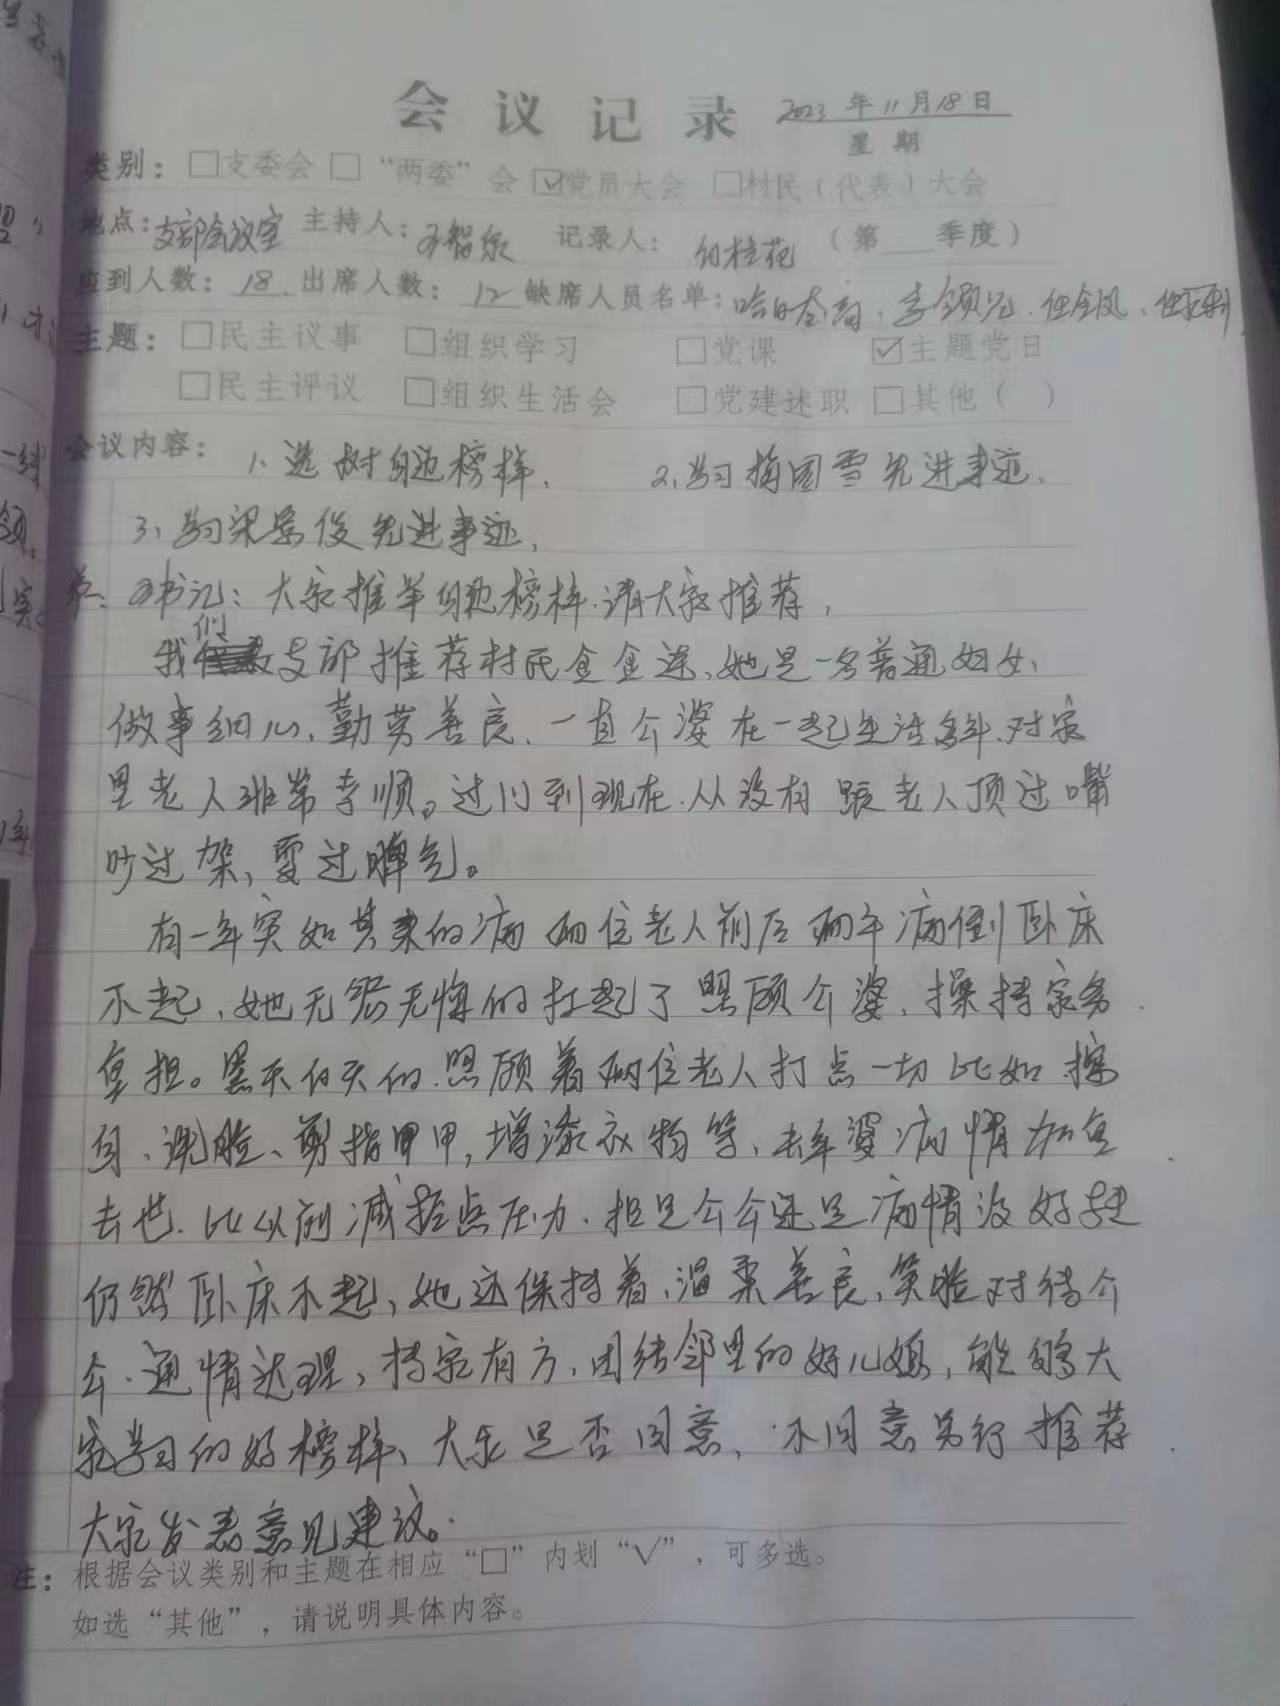 会议记录 2023年11月18日
星期
类别：□支委会 □“两委”会 ☑党员大会 □村民（代表）大会
地点：支部会议室 主持人： 记录人：白桂花 （第 季度）
应到人数：18 出席人数：12 缺席人员名单：
主题：□民主议事 □组织学习 □党课 ☑主题党日
□民主评议 □组织生活会 □党建述职 □其他（ ）
会议内容：1、选树身边榜样、 2、学习梅国雪先进事迹、
3、学习梁景俊先进事迹，
书记：大家推举身边榜样、请大家推荐，
我们支部推荐村民金金莲、她是一名普通妇女、
做事细心，勤劳善良、一直公婆在一起生活多年、对家
里老人非常孝顺。过门到现在、从没有跟老人顶过嘴
吵过架、耍过脾气。
有一年突如其来的病 两位老人前后两年病倒卧床
不起、她无怨无悔的扛起了照顾公婆、操持家务
重担。黑天白天的照顾着两位老人打点一切比如擦
身、洗脸、剪指甲，增添衣物等、去年婆病情加重
去世、比以前减轻点压力、担是公公还是病情没好转
仍然卧床不起，她还保持着、温柔善良、笑脸对待公
公、通情达理，持家有方、团结邻里的好儿媳，能够大
家学习的好榜样、大家是否同意、不同意另行推荐
大家发表意见建议。
注：根据会议类别和主题在相应“□”内划“√”，可多选。
如选“其他”，请说明具体内容。